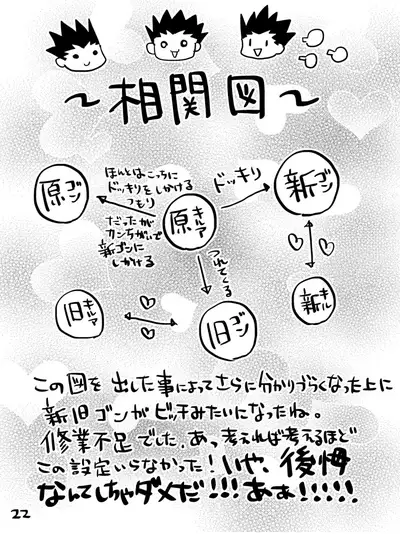 ～相関図～
ほんとはこっちに
ドッキリをしかける
つもり
だったが
カンちがいで
新ゴンに
しかける
ドッキリ
原ゴン
原キルア
新ゴン
つれてくる
旧キルア
旧ゴン
新キル
この図を出した事によってさらに分かりづらくなった上に
新旧ゴンがビッチみたいになったね。
修業不足でした。あっ考えれば考えるほど
この設定いらなかった!いや、後悔
なんてしちゃダメだ!!!ああ!!!!!
22